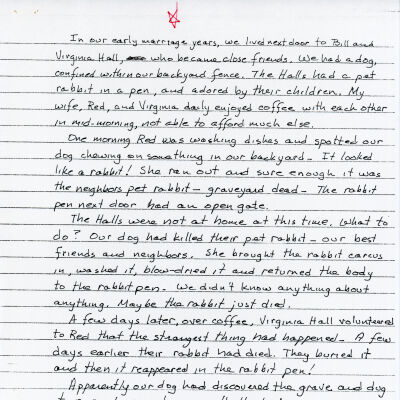 In our early marriage years, we lived next door to Bill and
Virginia Hall, who became close friends. We had a dog,
confined within our backyard fence. The Halls had a pet
rabbit in a pen, and adored by their children. My
wife, Red, and Virginia daily enjoyed coffee with each other
in mid-morning, not able to afford much else.
One morning Red was washing dishes and spotted our
dog chewing on something in our backyard - It looked
like a rabbit! She ran out and sure enough it was
the neighbors pet rabbit - graveyard dead - The rabbit
pen next door had an open gate.
The Halls were not at home at this time. What to
do? Our dog had killed their pet rabbit - our best
friends and neighbors. She brought the rabbit carcus
in, washed it, blow-dried it and returned the body
to the rabbit pen. We didn't know anything about
anything. Maybe the rabbit just died.
A few days later, over coffee, Virginia Hall volunteered
to Red that the strangest thing had happened - A few
days earlier their rabbit had died. They buried it
and then it reappeared in the rabbit pen!
Apparently our dog had discovered the grave and dug